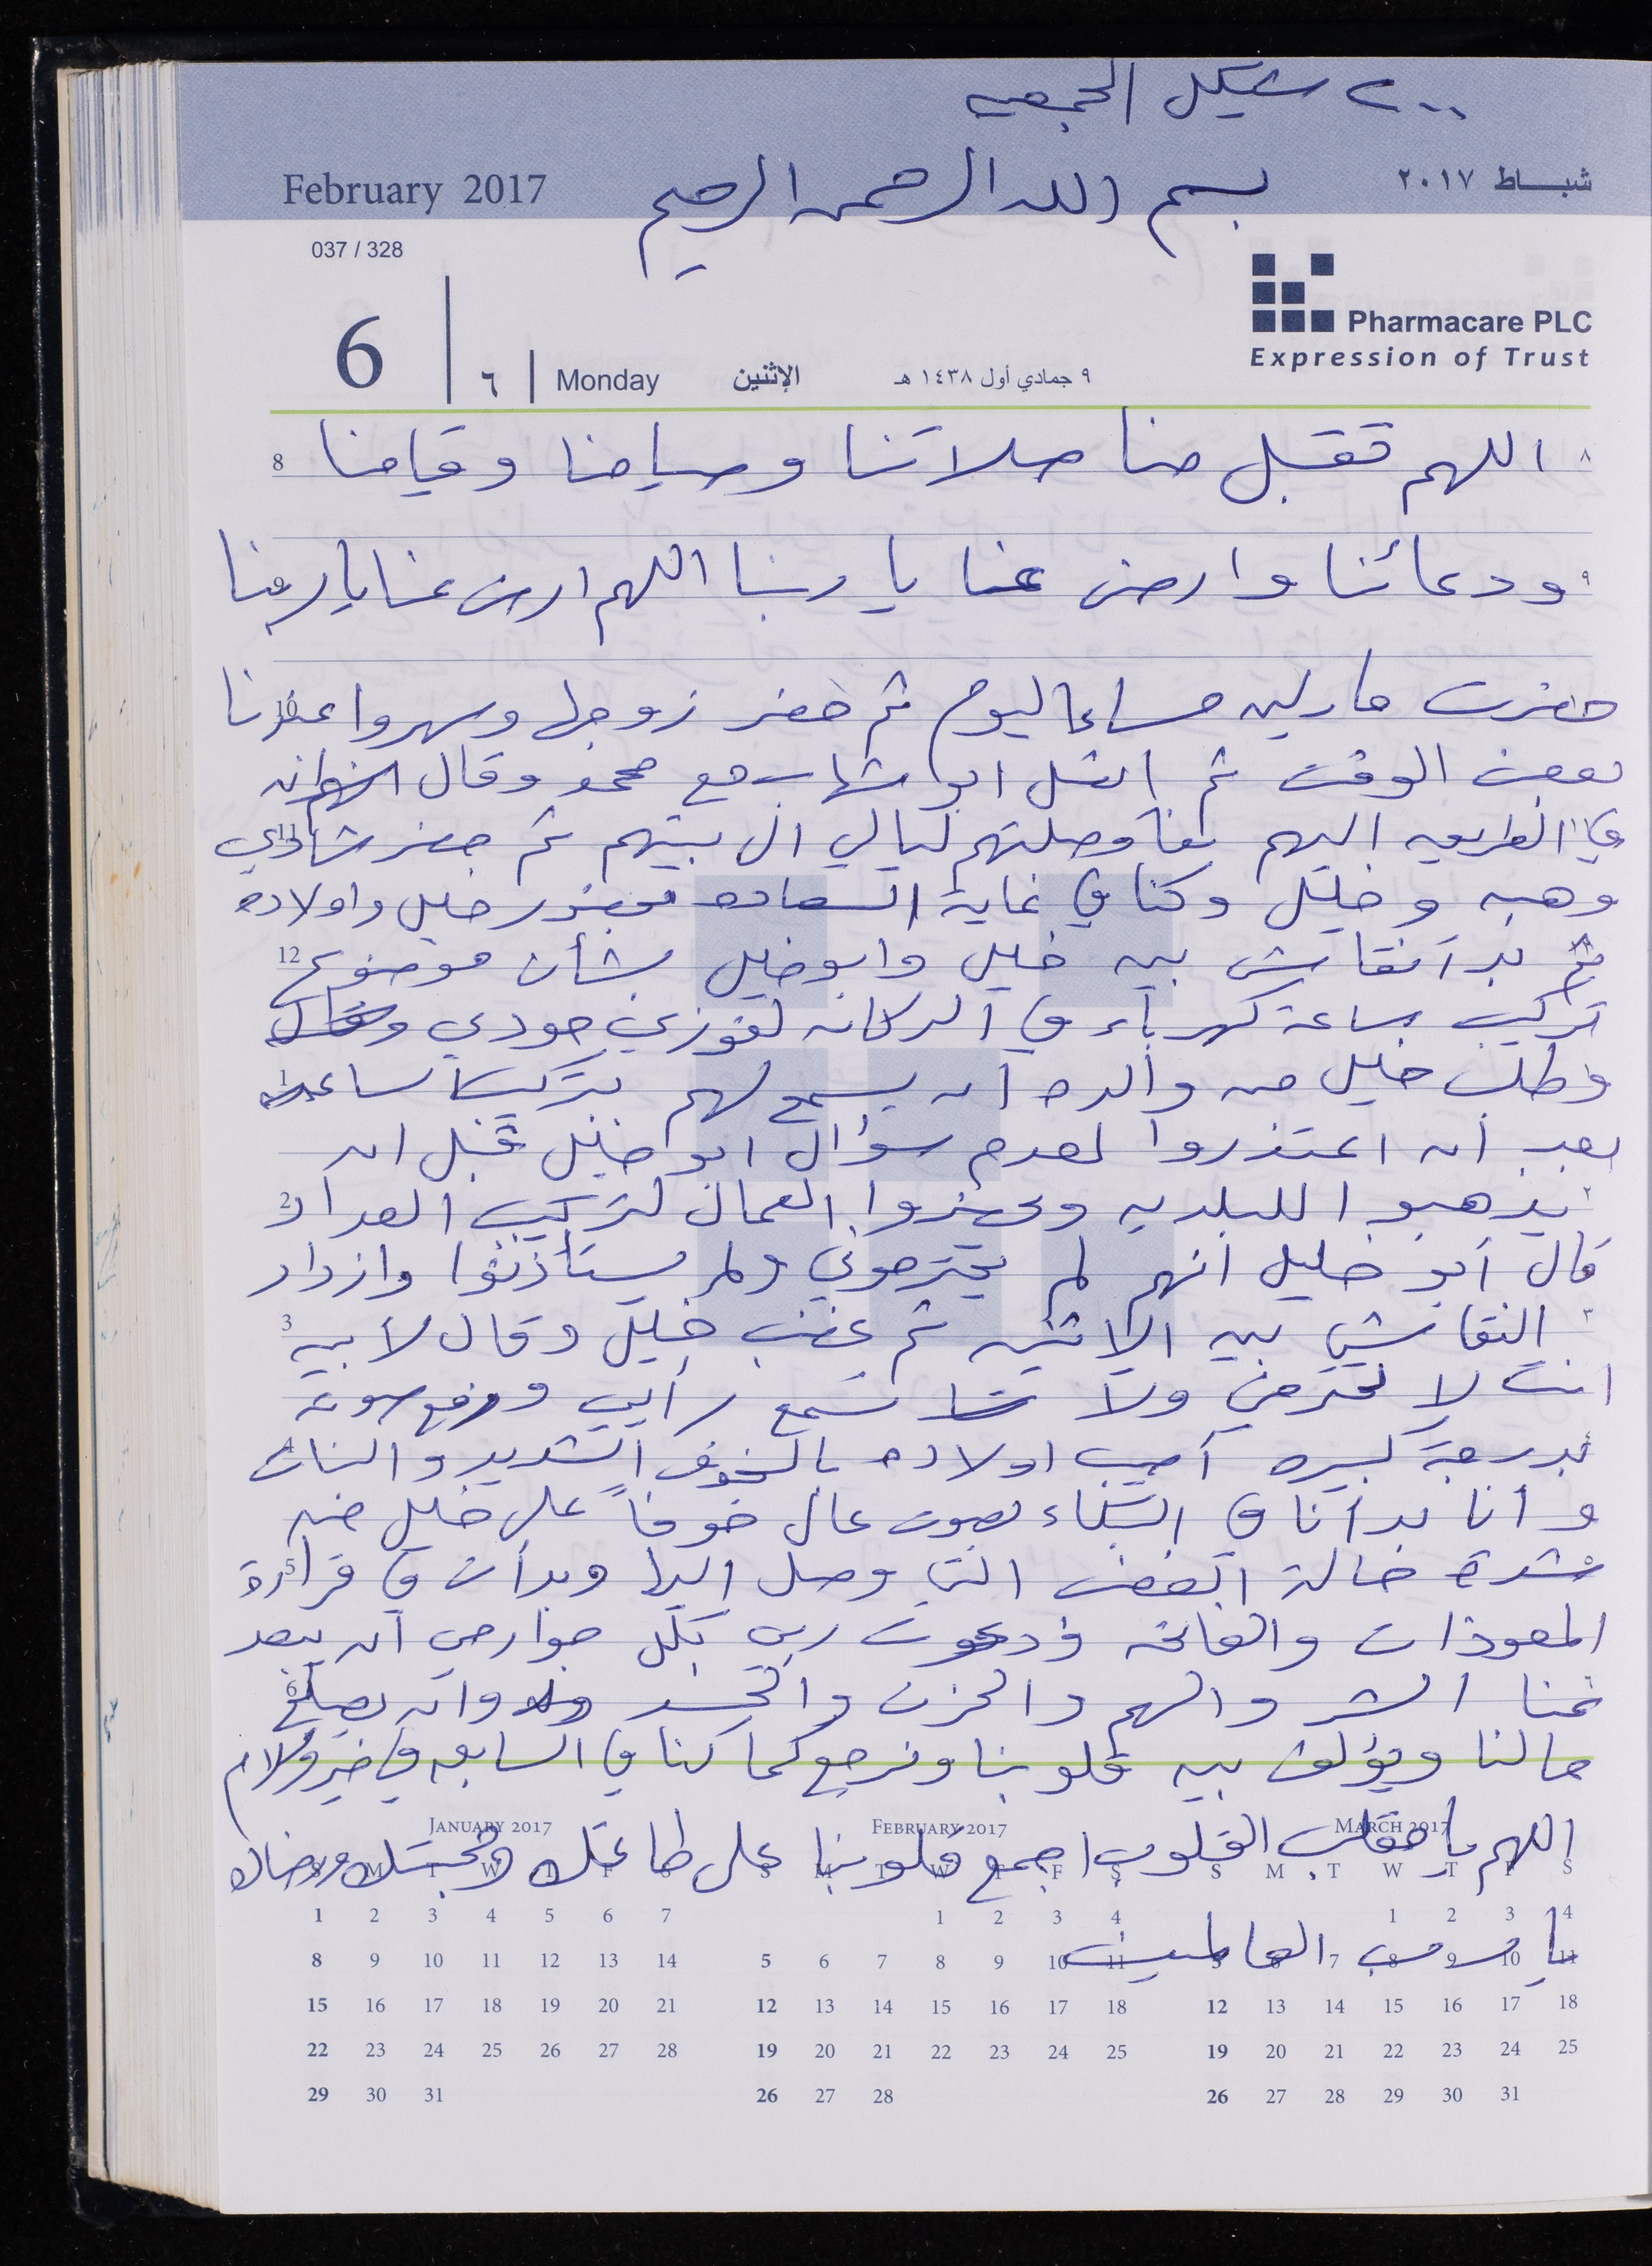 ٢٠٠ شيكل الجمعيه
February 2017
بسم الله الرحمن الرحيم
شبــاط ٢٠١٧
037 / 328
Pharmacare PLC
Expression of Trust
6 ٦ Monday الإثنين ٩ جمادي أول ١٤٣٨ هـ
8 اللهم تقبل منا صلاتنا وصيامنا وقيامنا ٨
ودعائنا وارض عنا يا ربنا اللهم ارض عنا يا ربنا ٩
حضرت مارلين مساءا ليوم ثم حضر زوجها وسهروا عندنا
بعض الوقت ثم اتصل ابو شهاب مع محمد وقال انه
في الطريق اليهم وصلتهم ليالي الى بيتهم ثم حضر شادي
وهبه وخليل وكنا في غاية السعاده بحضور خليل واولاده
ثم بدأ نقاش بين خليل وابو خليل بشأن موضوع
تركيب ساعة كهرباء في الدكانه لفوزي جودي
وطلب خليل من والده أن يسمح لهم بتركيب ساعه
بعد أن اعتذروا لعدم سؤال ابو خليل قبل ان
يذهبو للبلديه ويحضروا العمال لتركيب العداد
قال أبو خليل انهم لم يحترموني ولم يستأذنوا وازداد
النقاش بين الاثنين ثم غضب خليل وقال لأبيه
انت لا تحترمني ولا تسمع رأيي ورفع صوته
بدرجة كبيره أصيب اولاده بالخوف الشديد والبنات
وأنا بدأنا في البكاء بصوت عال خوفاً على خليل من
شدة حالة الغضب التي وصل اليها وبدأت في قراءة
المعوذات والفاتحه ودعوت ربي بكل جوارحي أن يبعد
عنا الشر والهم والحزن والحسد وان يصلح
حالنا ويؤلف بين قلوبنا ونرجع كما كنا في السابق في خير وسلام
اللهم يا مقلب القلوب اجمع قلوبنا على طاعتك ومحبتك ورضاك
يا رب العالمين
JANUARY 2017 FEBRUARY 2017 MARCH 2017
S M T W T F S S M T W T F S S M T W T F S
1 2 3 4 5 6 7 1 2 3 4 1 2 3 4
8 9 10 11 12 13 14 5 6 7 8 9 10 11 5 6 7 8 9 10 11
15 16 17 18 19 20 21 12 13 14 15 16 17 18 12 13 14 15 16 17 18
22 23 24 25 26 27 28 19 20 21 22 23 24 25 19 20 21 22 23 24 25
29 30 31 26 27 28 26 27 28 29 30 31